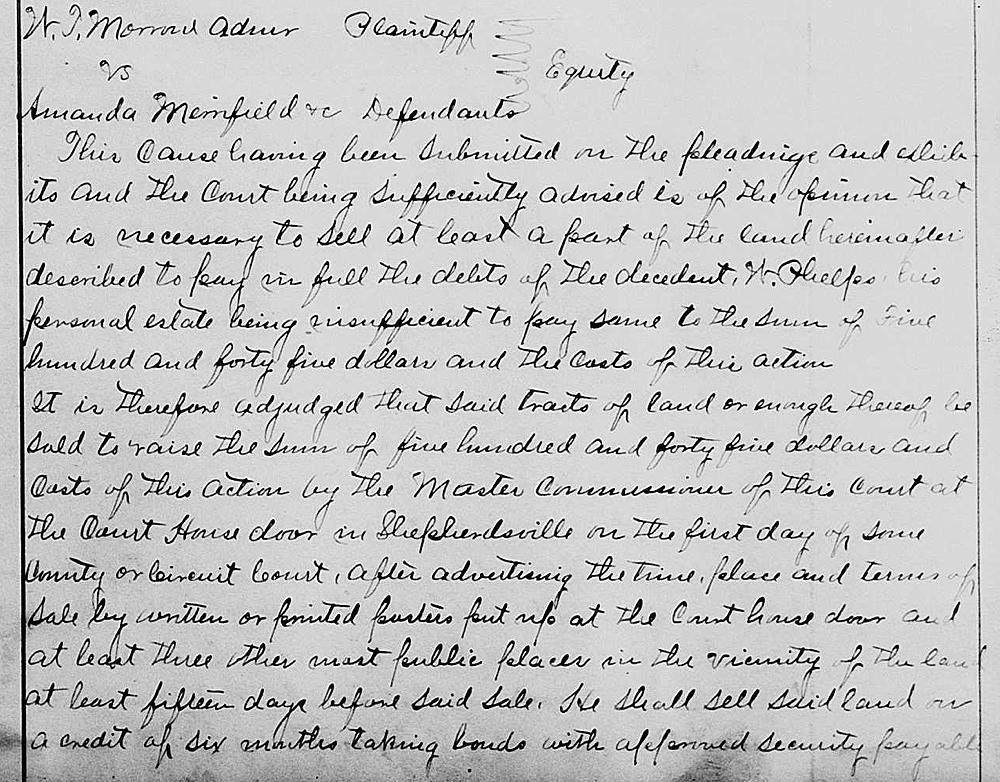 W. T. Morrow Admr Plaintiff
vs Equity
Amanda Merrifield &c Defendants
This Cause having been submitted on the pleadings and exhib-
its and the Court being sufficiently advised is of the opinion that
it is necessary to sell at least a part of the land hereinafter
described to pay in full the debts of the decedent, W. Phelps, his
personal estate being insufficient to pay same to the sum of Five
hundred and forty five dollars and the costs of this action
It is therefore adjudged that said tracts of land or enough thereof be
sold to raise the sum of five hundred and forty five dollars and
Costs of this action by the Master Commissioner of this Court at
the Court House door in Shepherdsville on the first day of some
County or Circuit Court, after advertising the time, place and terms of
sale by written or printed posters put up at the Court house door and
at least three other most public places in the vicinity of the land
at least fifteen days before said sale. He shall sell said land on
a credit of six months taking bonds with approved security payable